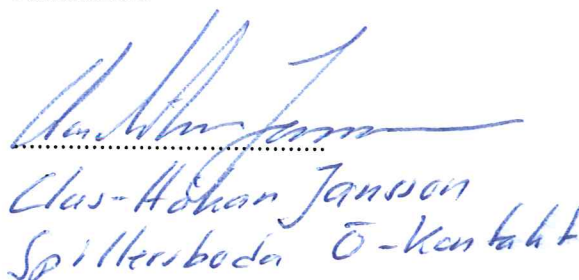 Clas-Håkan Jansson
Spillersboda Ö-Kontakt